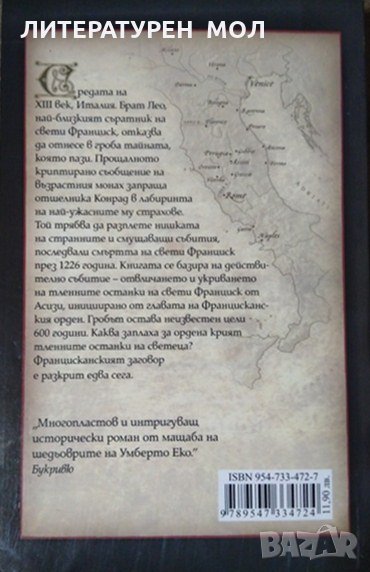 ЛИТЕРАТУРЕН МОЛ
Средата на
XIII век, Италия. Брат Лео,
най-близкият съратник на
свети Франциск, отказва
да отнесе в гроба тайната,
която пази. Прощалното
криптирано съобщение на
възрастния монах запраща
отшелника Конрад в лабиринта
на най-ужасните му страхове.
Той трябва да разплете нишката
на странните и смущаващи събития,
последвали смъртта на свети Франциск
през 1226 година. Книгата се базира на действи-
телно събитие – отвличането и укриването
на тленните останки на свети Франциск от
Асизи, инициирано от главата на Францискан-
ския орден. Гробът остава неизвестен цели
600 години. Каква заплаха за ордена крият
тленните останки на светеца?
Францисканският заговор
е разкрит едва сега.
„Многопластов и интригуващ
исторически роман от мащаба на
шедьоврите на Умберто Еко."
Букривю
Venice
Perugia
Assisi
Rome
Naples
ISBN 954-733-472-7
9 789547 334724
11,90 лв.
BAZAR